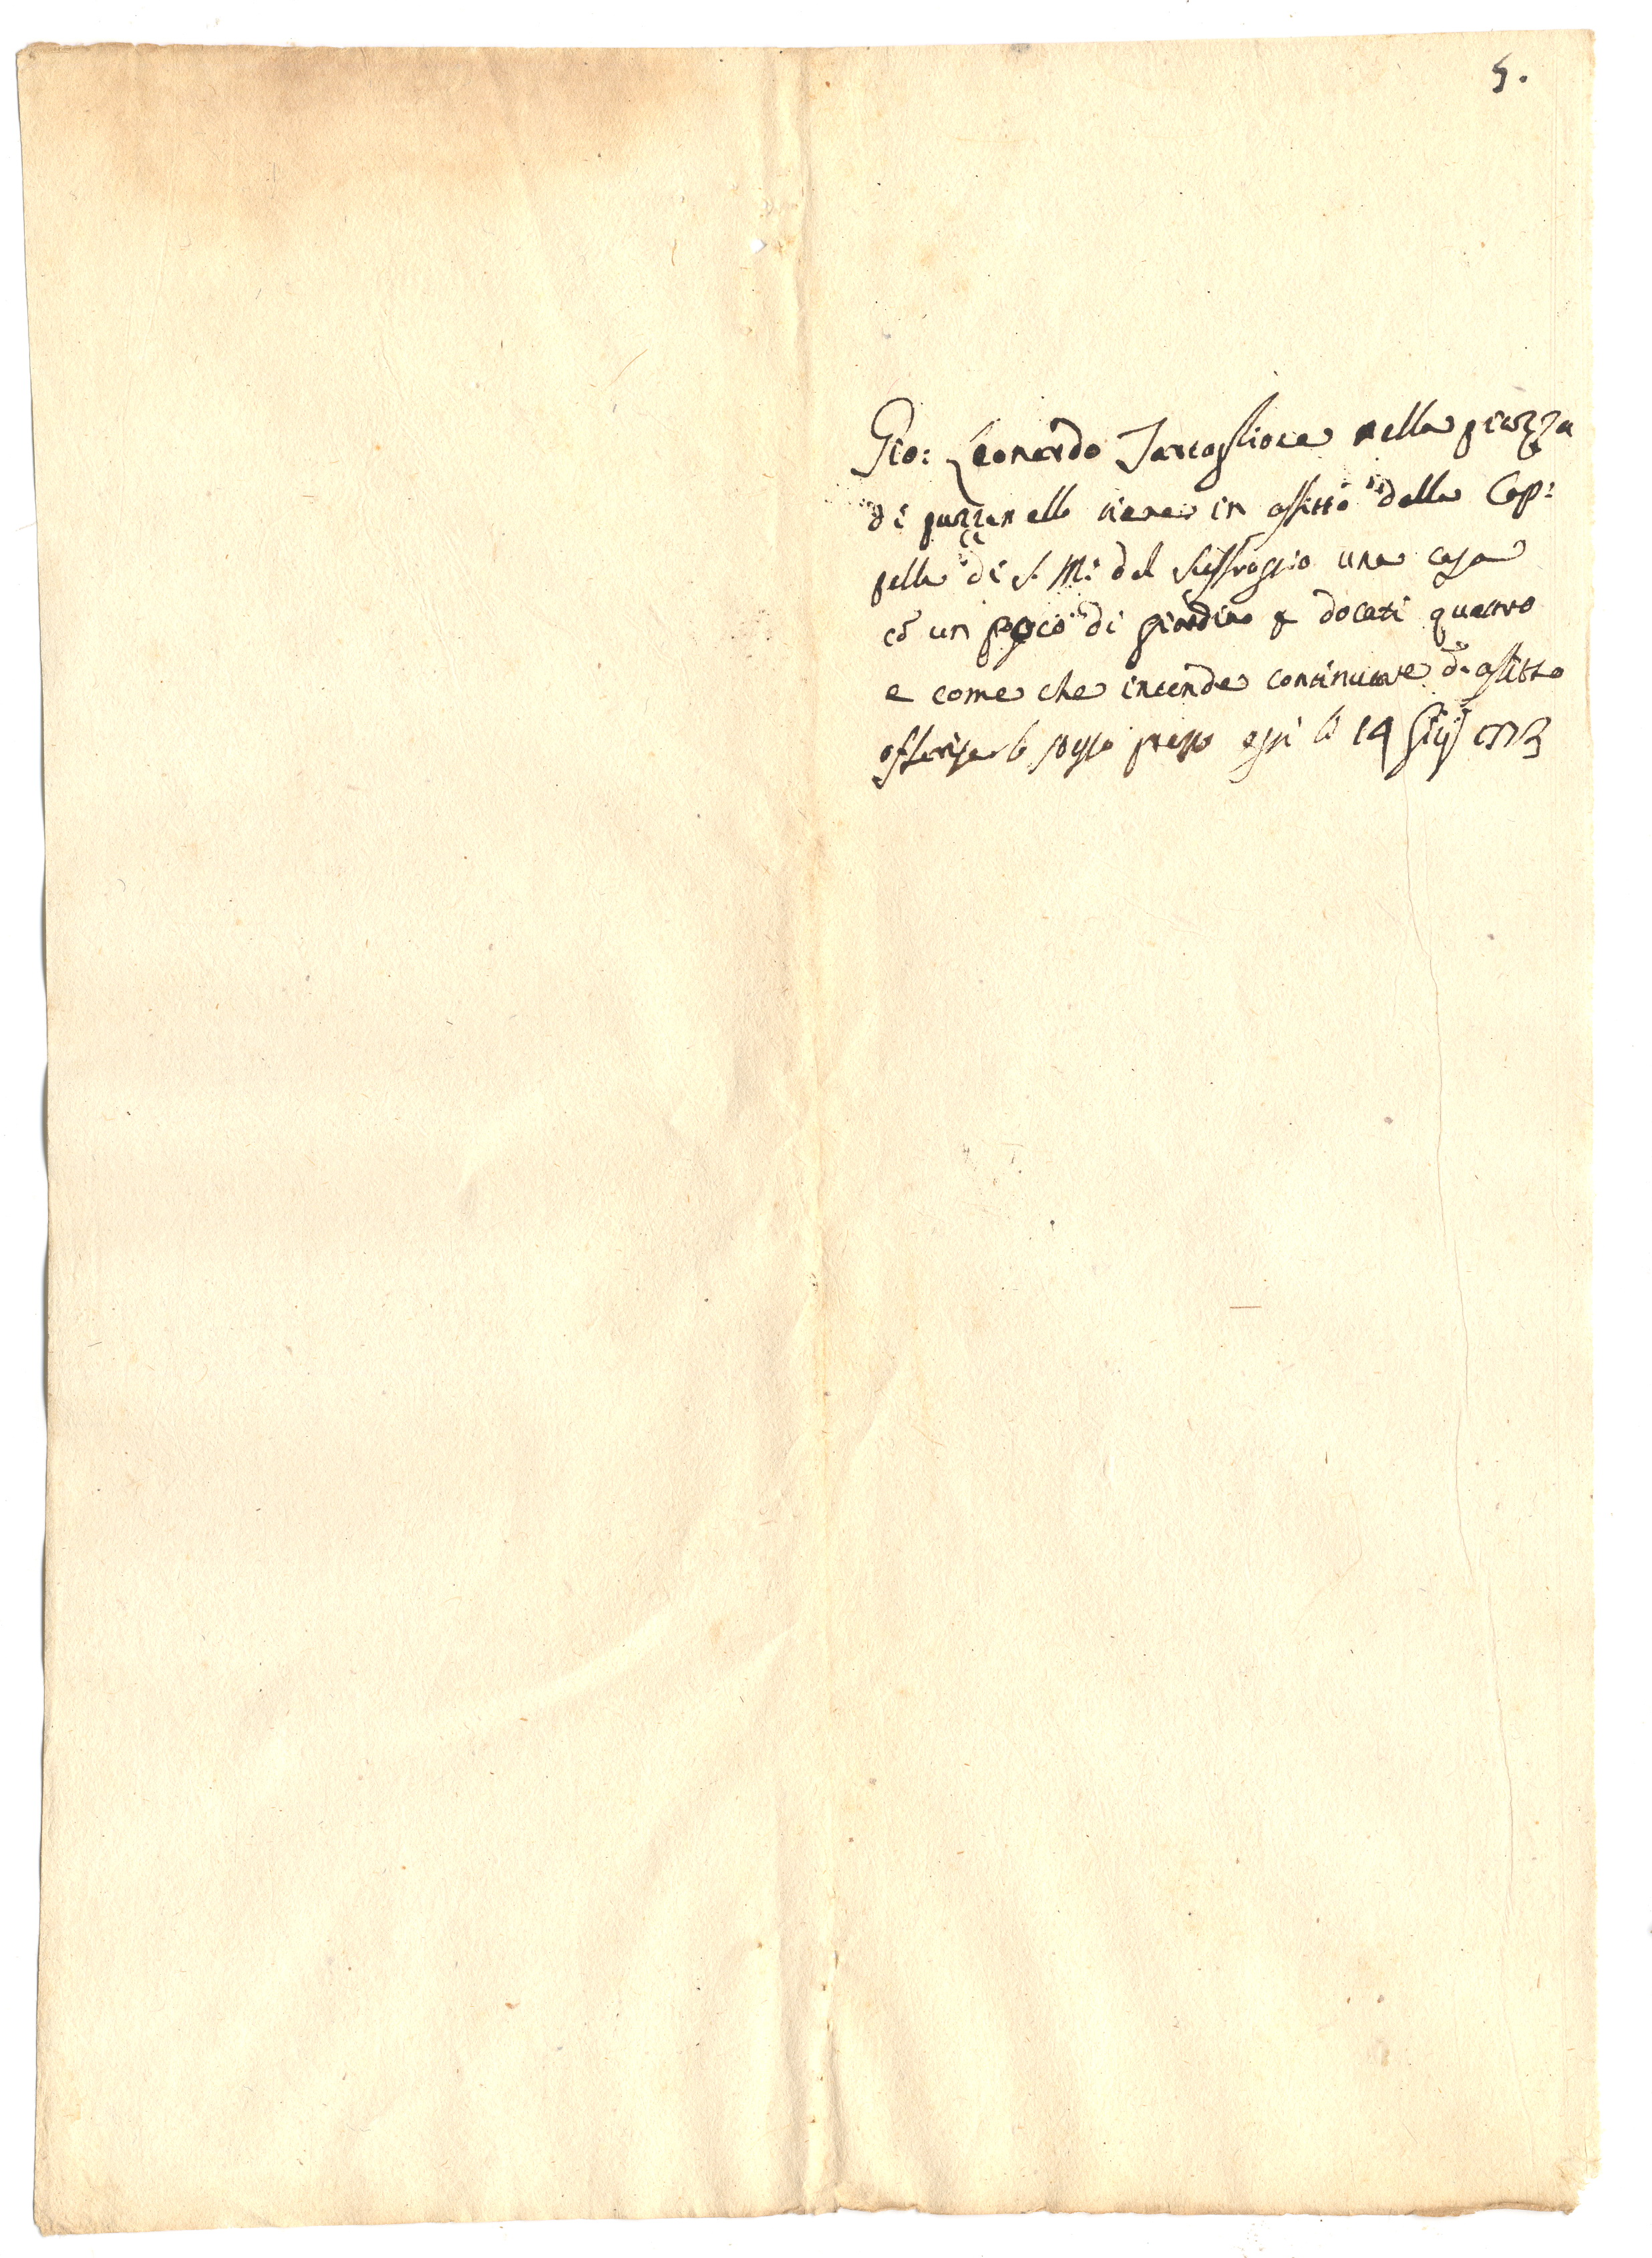 5.
Gio: Leonardo Tartaglione nella piazza
di puzzaniello tiene in affitto dalla Cap:
pella di S. M. del Suffragio una casa
cō un poco di giardino p docati quattro
e come che intende continuare d.o affitto
offerisce lo stesso prezzo oggi li 14